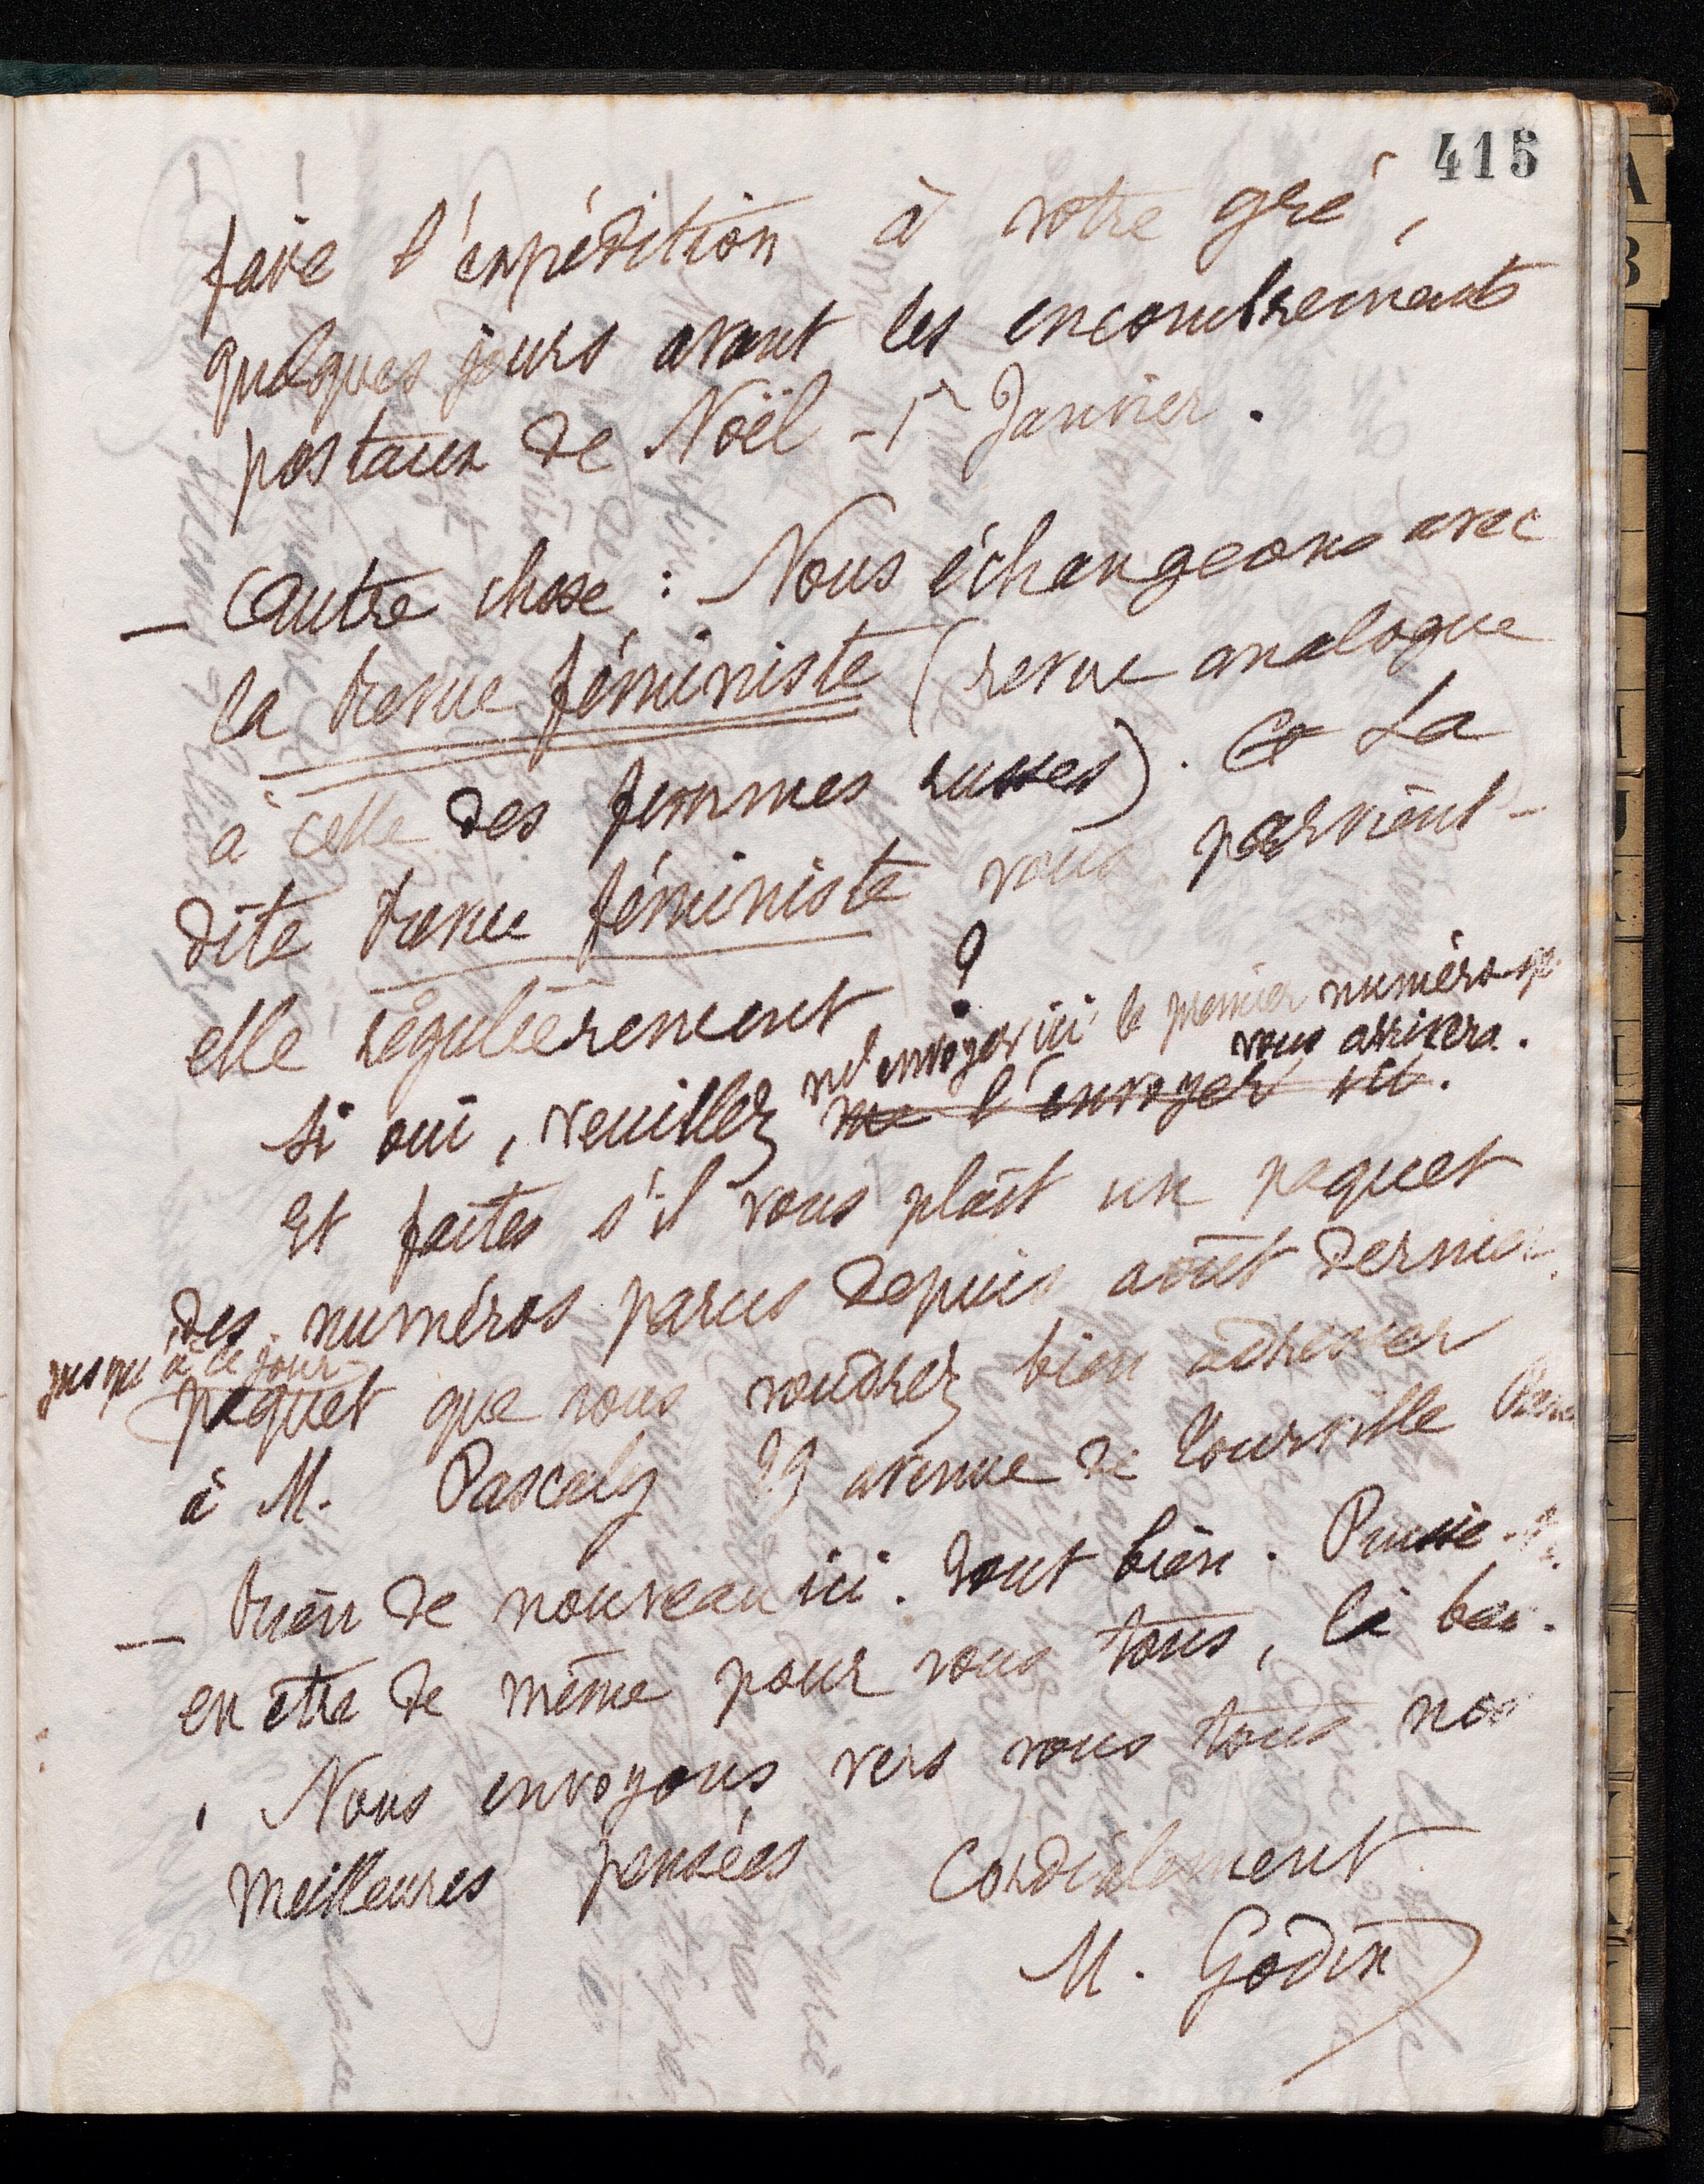 415
faire l'expédition à votre gré,
quelques jours avant les encombrements
postaux de Noël - 1er Janvier.
— Autre chose : Nous échangeons avec
la Revue féministe (revue analogue
à celle des femmes russes). Ce La
dite Revue féministe vous parvient-
elle régulièrement ?
Si oui, veuillez m'envoyer ici le premier numéro qui
vous arrivera.
me l'envoyer ici.
Et faites s'il vous plaît un paquet
des numéros parus depuis août dernier,
jusqu'à ce jour
paquet que vous voudrez bien adresser
à M. Pascaly 29 avenue de Tourville Paris
— Rien de nouveau ici. Tout bien. Puisse-t-il
en être de même pour vous tous, là bas.
Nous envoyons vers vous tous nos
meilleures pensées Cordialement
M. Godin